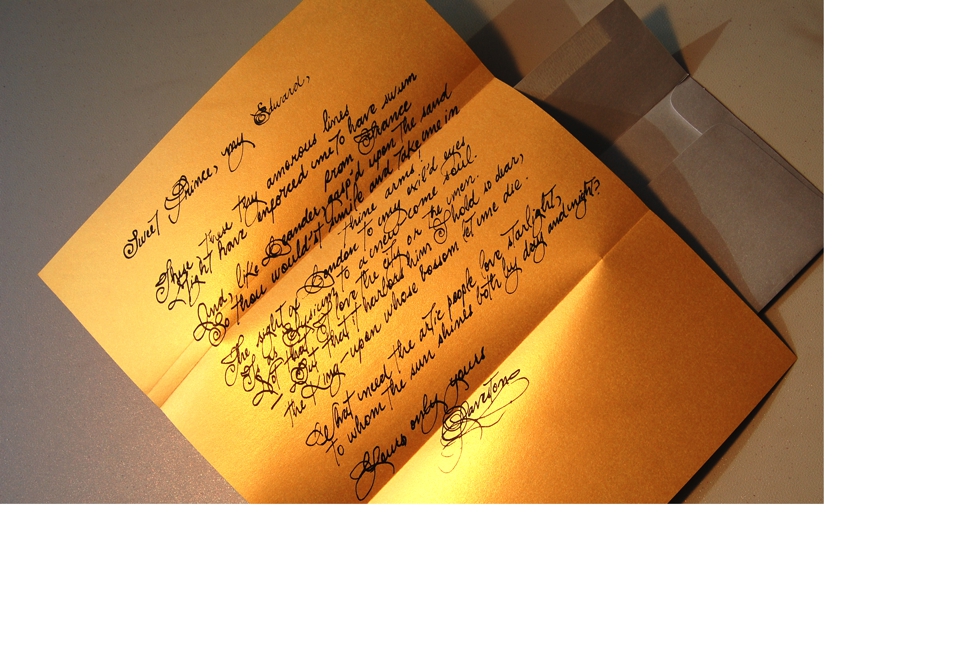 Sweet Prince, my Edward,
These thou thy amorous lines
Might have enforced me to have swum
from France
And, like Leander, gasp'd upon the sand
So thou would'st smile and take me in
thine arms!
The sight of London to my exil'd eyes
Is as Elysium to a new come soul.
Not that I love the city or the men.
But that it harbors him I hold so dear,
the King- upon whose bossom let me die.
What need the artic people love starlight,
To whom the sun shines both by day and night?
Yours only yours
Gavestone